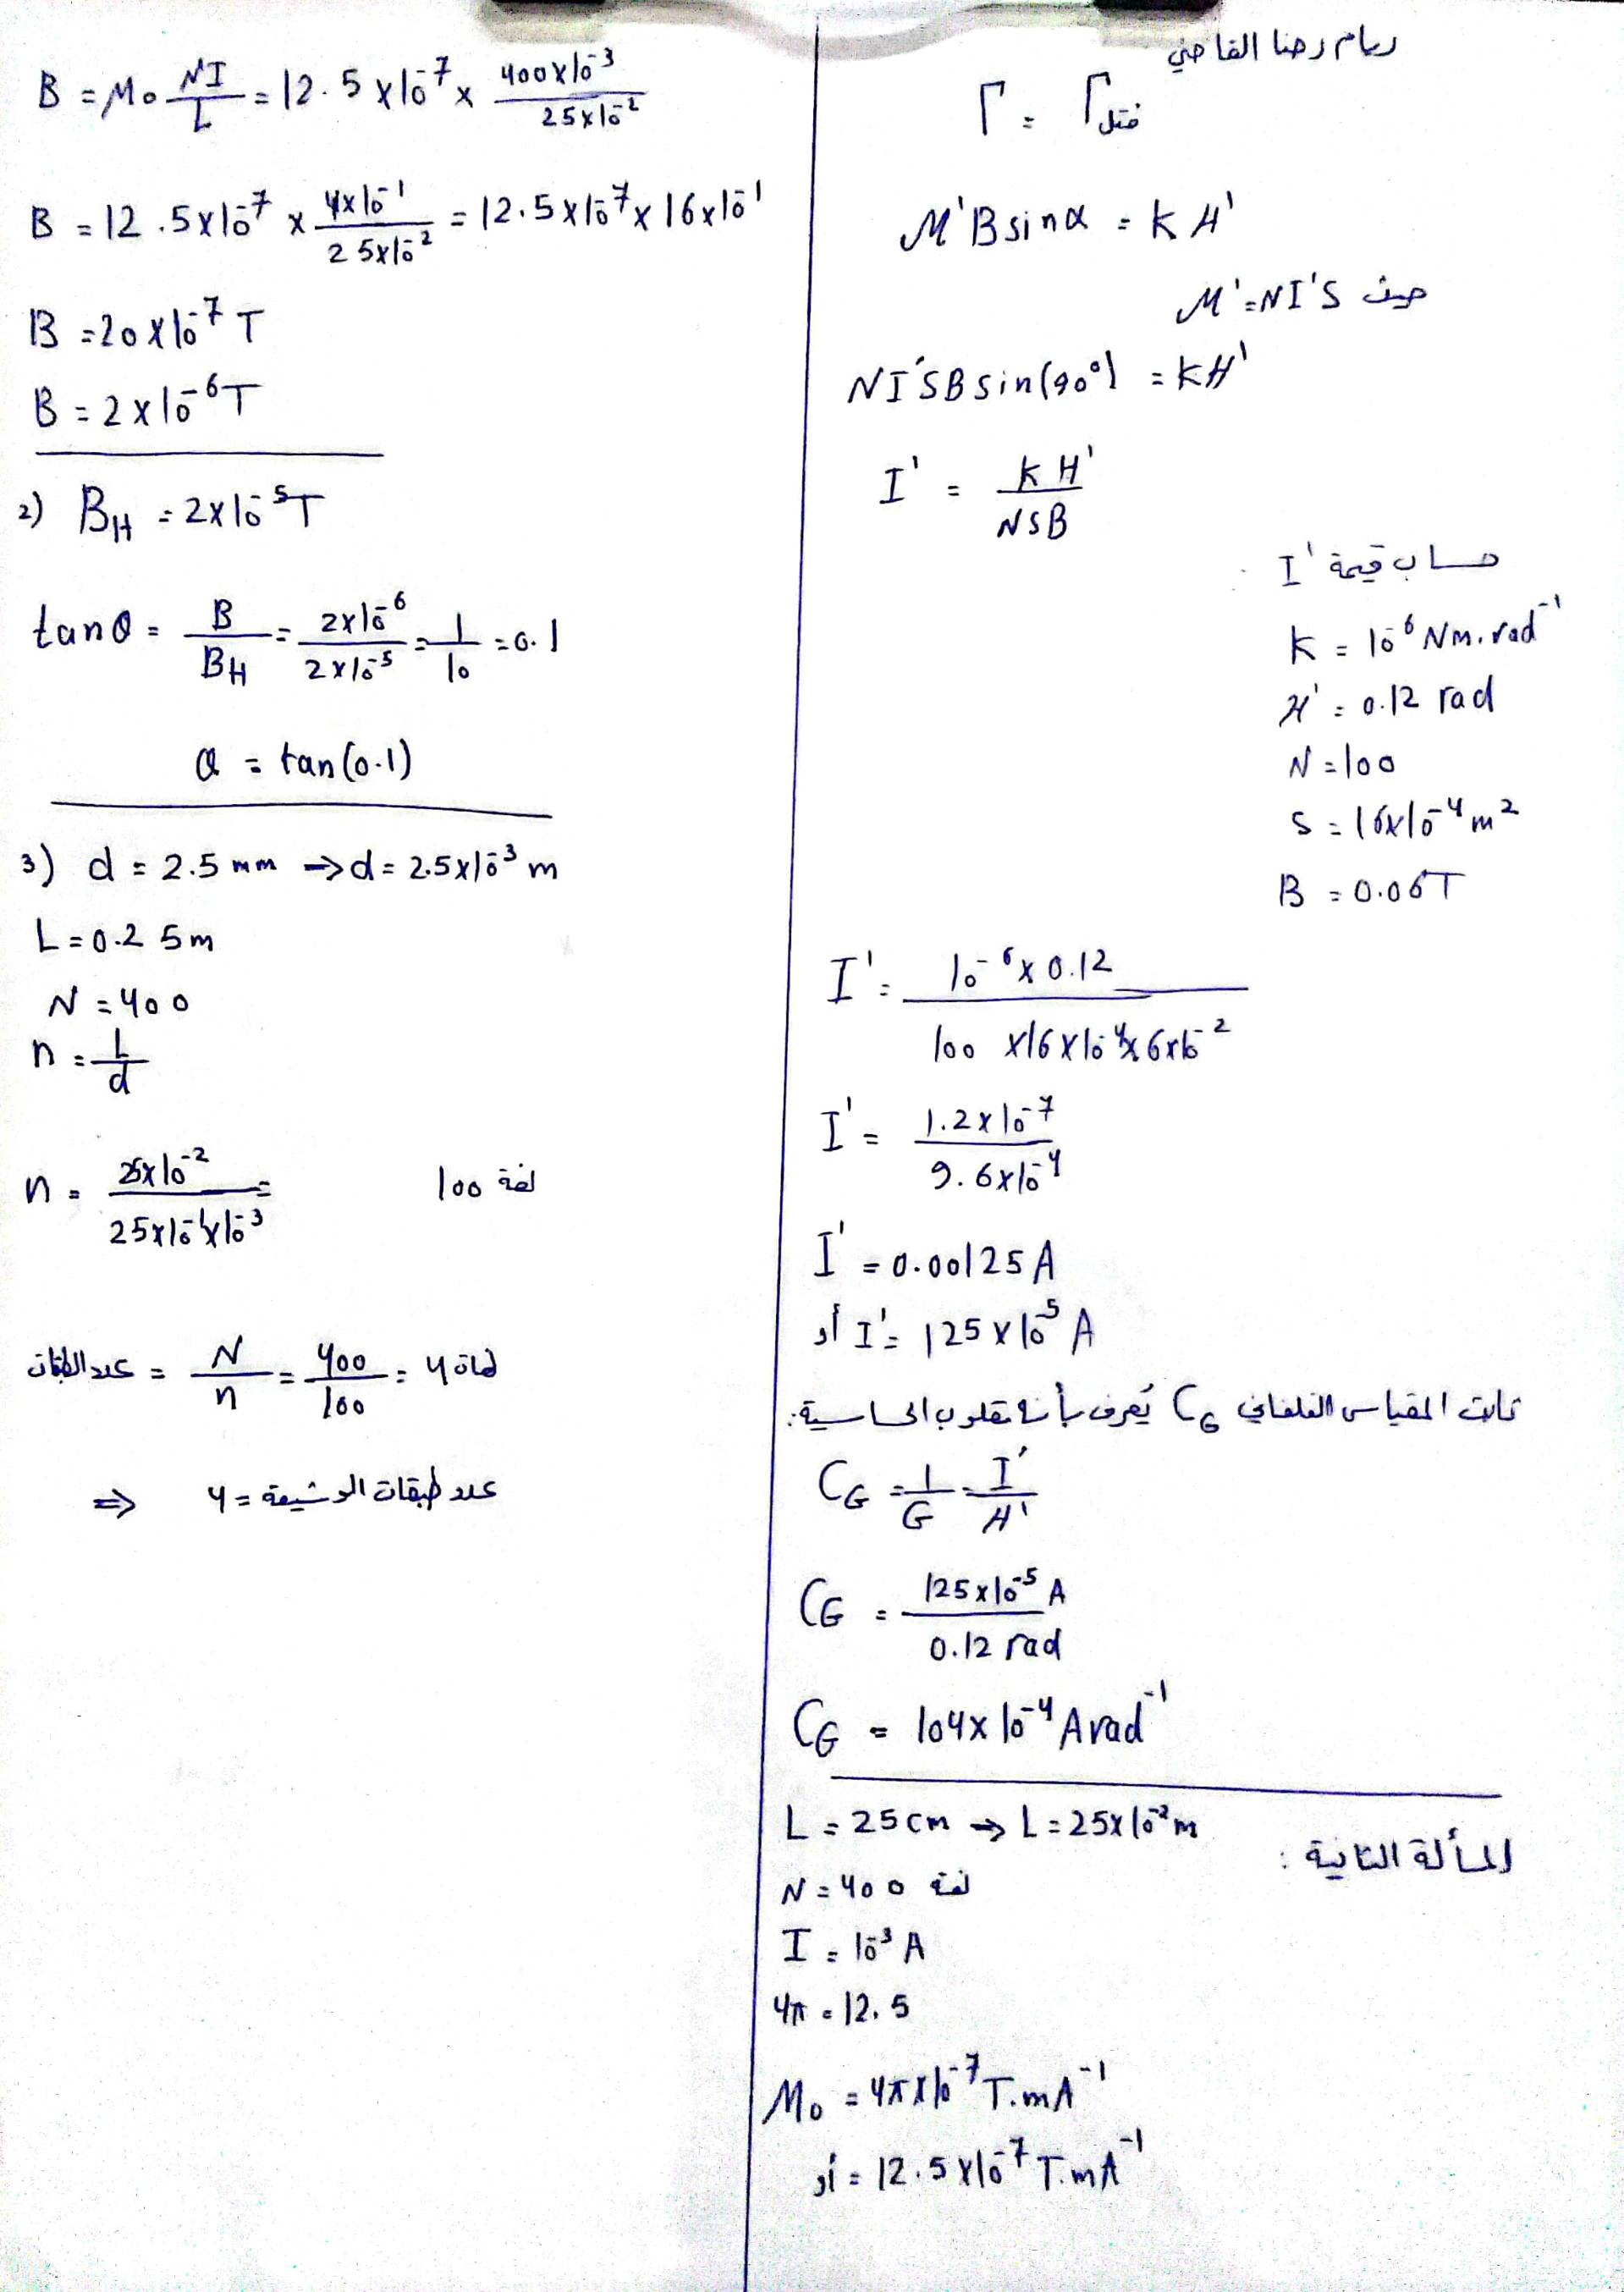 ريام رضا القاضي
Γ = Γ فتل
M'B sin α = K θ'
حيث M' = NI'S
NI'SB sin(90°) = Kθ'
I' = Kθ' / NSB
حساب قيمة I' :
K = 10⁻⁶ Nm.rad⁻¹
θ' = 0.12 rad
N = 100
S = 16x10⁻⁴ m²
B = 0.06T
I' = 10⁻⁶ x 0.12 / 100 x16x10⁻⁴x 6x10⁻²
I' = 1.2x10⁻⁷ / 9.6x10⁻⁴
I' = 0.00125 A
أو I' = 125 x 10⁻⁵ A
ثابت المقياس الغلفاني C_G يُعرف بأنه مقلوب الحساسية:
C_G = 1/G = I'/θ'
C_G = 125x10⁻⁵ A / 0.12 rad
C_G = 104x10⁻⁴ A rad⁻¹
المسألة الثانية :
L = 25 cm → L = 25x10⁻² m
N = 400 لفة
I = 10⁻³ A
4π = 12.5
M₀ = 4πx10⁻⁷ T.mA⁻¹
أو = 12.5x10⁻⁷ T.mA⁻¹
B = M₀ NI/L = 12.5 x10⁻⁷ x 400x10⁻³ / 25x10⁻²
B = 12.5x10⁻⁷ x 4x10⁻¹ / 25x10⁻² = 12.5x10⁻⁷x 16x10⁻¹
B = 20x10⁻⁷ T
B = 2x10⁻⁶T
2) B_H = 2x10⁻⁵T
tan θ = B/B_H = 2x10⁻⁶ / 2x10⁻⁵ = 1/10 = 0.1
θ = tan(0.1)
3) d = 2.5 mm → d = 2.5x10⁻³ m
L = 0.25m
N = 400
n = L/d
n = 25x10⁻² / 25x10⁻¹x10⁻³ = 100 لفة
عدد الطبقات = N/n = 400/100 = 4 لفات
⇒ عدد طبقات الوشيعة = 4